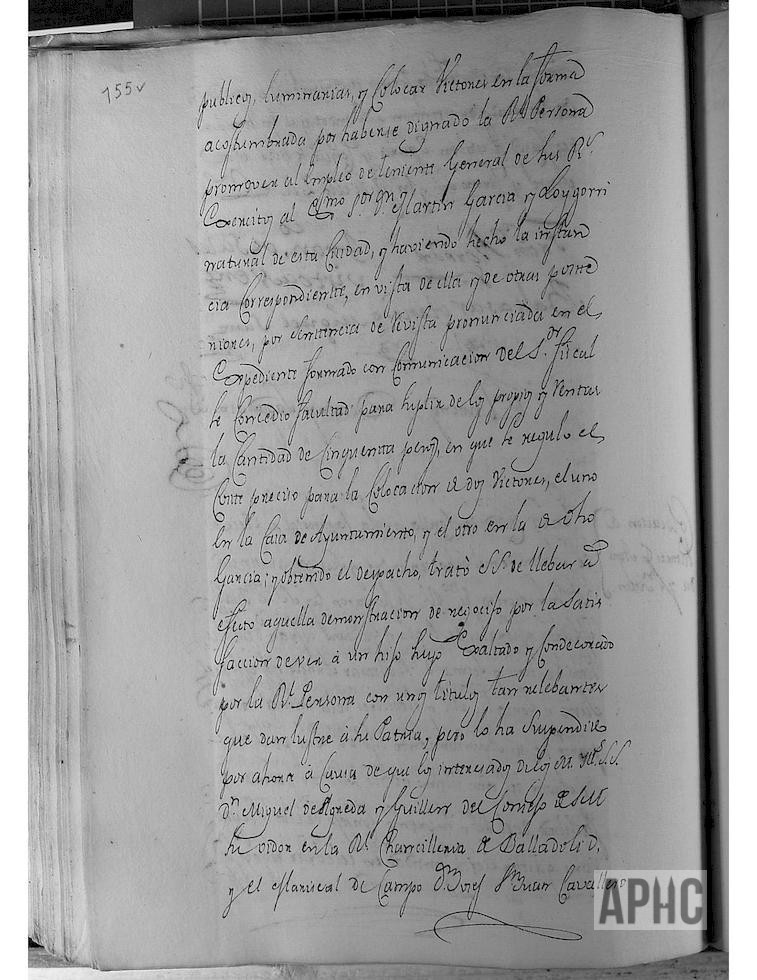 155v
publicos, luminarias, y Colocar Victores en la forma
acostumbrada por haberse dignado la Rl Persona
promover al empleo de teniente General de sus Rs
Exercitos al Exmo Sor Dn Martin Garcia y Loygorri
natural de esta Ciudad, y haviendo hecho la instan
cia Correspondiente, en vista de ella y de otras
por Sentencia de Revista pronunciada en el
Expediente formado con Comunicacion del Sor Fiscal
se Concedio facultad para suplir de los propios y Rentas
la Cantidad de Cinquenta pesos, en que se regulo el
Coste preciso para la Colocacion de dos Victores, el uno
en la Casa de Ayuntamiento, y el otro en la de dho
Garcia; y obtenido el despacho, trató SS de llebar á
efecto aquella demonstracion de regocijo por la satis
faccion de ver á un hijo suyo Exaltado y Condecorado
por la Rl Persona con unos titulos tan relebantes
que dan lustre á su Patria, pero lo ha suspendido
por ahora á Causa de que los intenciados
Dn Miguel de y Guillen del Consejo de S M
su oidor en la Rl Chancilleria de Balladolid,
y el Mariscal de Campo Dn Josef Sn Juan Cavallero
APHC